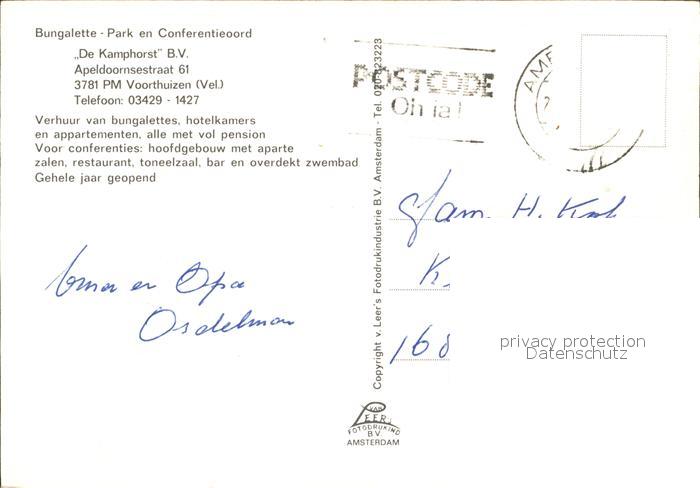 Bungalette - Park en Conferentieoord
„De Kamphorst" B.V.
Apeldoornsestraat 61
3781 PM Voorthuizen (Vel.)
Telefoon: 03429 - 1427
Verhuur van bungalettes, hotelkamers
en appartementen, alle met vol pension
Voor conferenties: hoofdgebouw met aparte
zalen, restaurant, toneelzaal, bar en overdekt zwembad
Gehele jaar geopend
Oma en Opa
Osdelman
Copyright v. Leer's Fotodrukindustrie B.V. Amsterdam - Tel. 020-823223
VAN
LEER'S
FOTODRUKIND
B.V.
AMSTERDAM
POSTCODE
Oh ja!
AM
Fam. H.
K.
168
privacy protection
Datenschutz